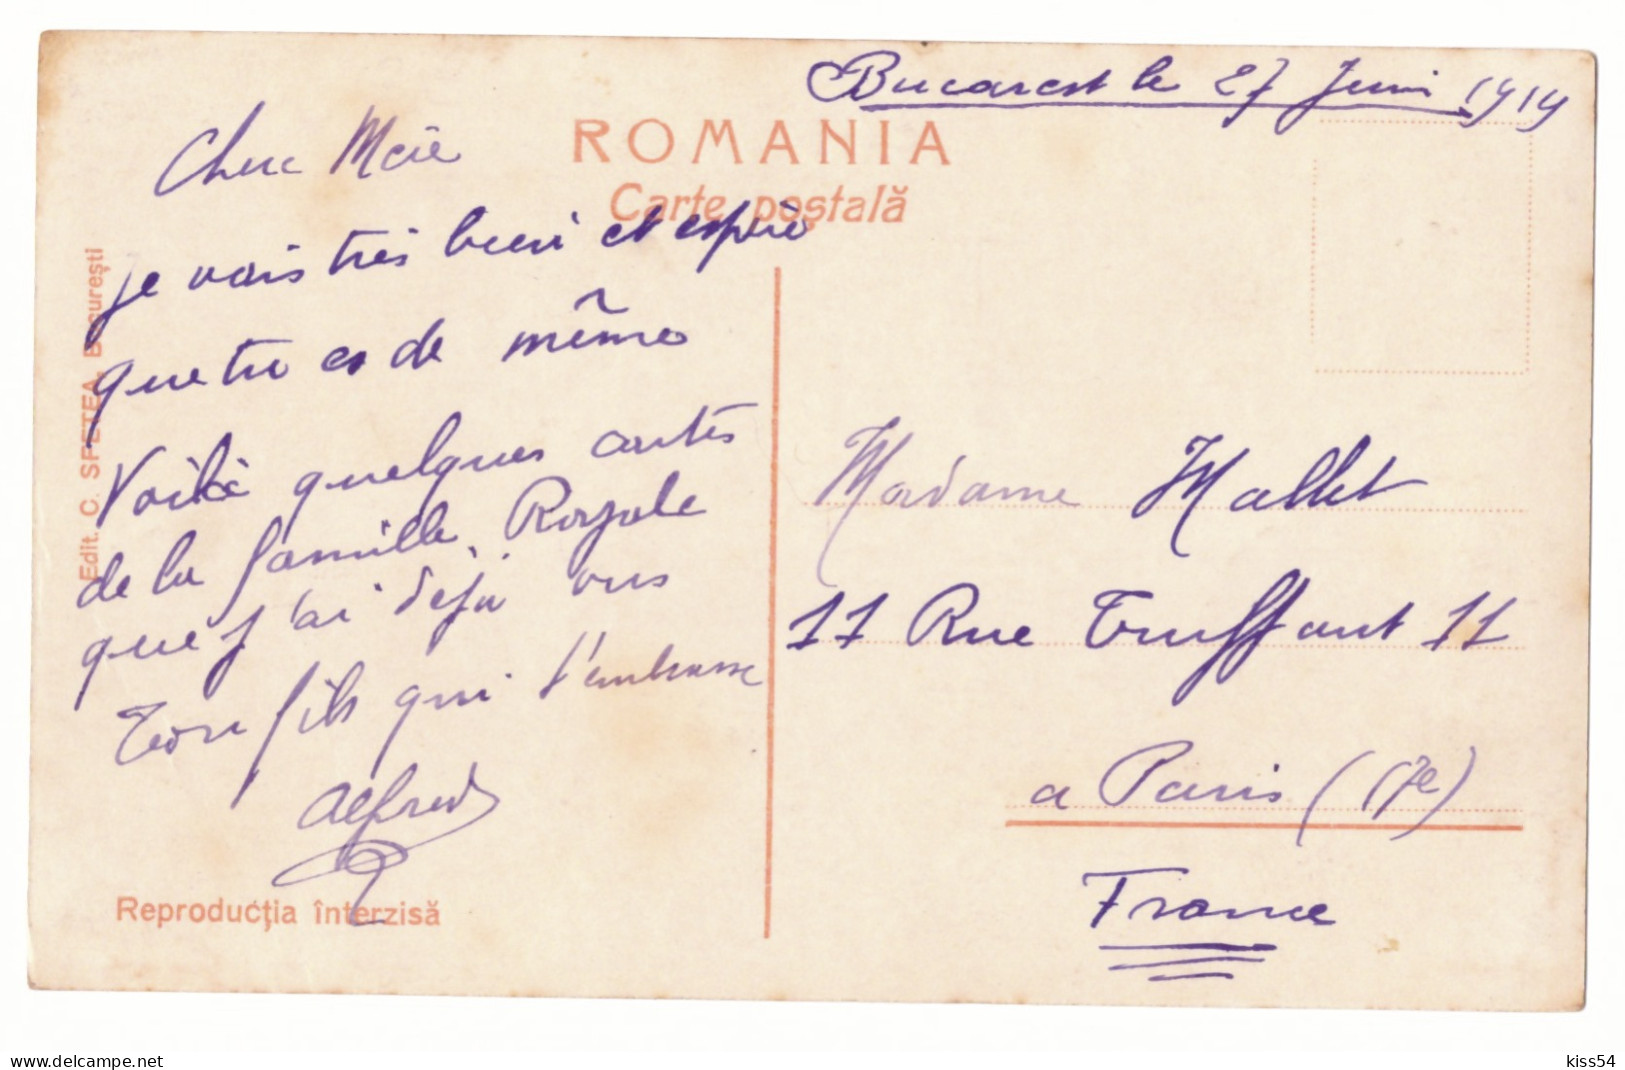 Bucarest le 27 Juin 1919
ROMANIA
Carte poştală
Chere Mère
je vais très bien et espère
que tu es de même
Voilà quelques cartes
de la famille Royale
que j'ai déjà vus
Ton fils qui t'embrasse
Alfred
Edit. C. SFETEA, Bucureşti
Reproducţia interzisă
Madame Mallet
11 Rue Truffaut 11
a Paris (17e)
France
delcampe.net
kiss54